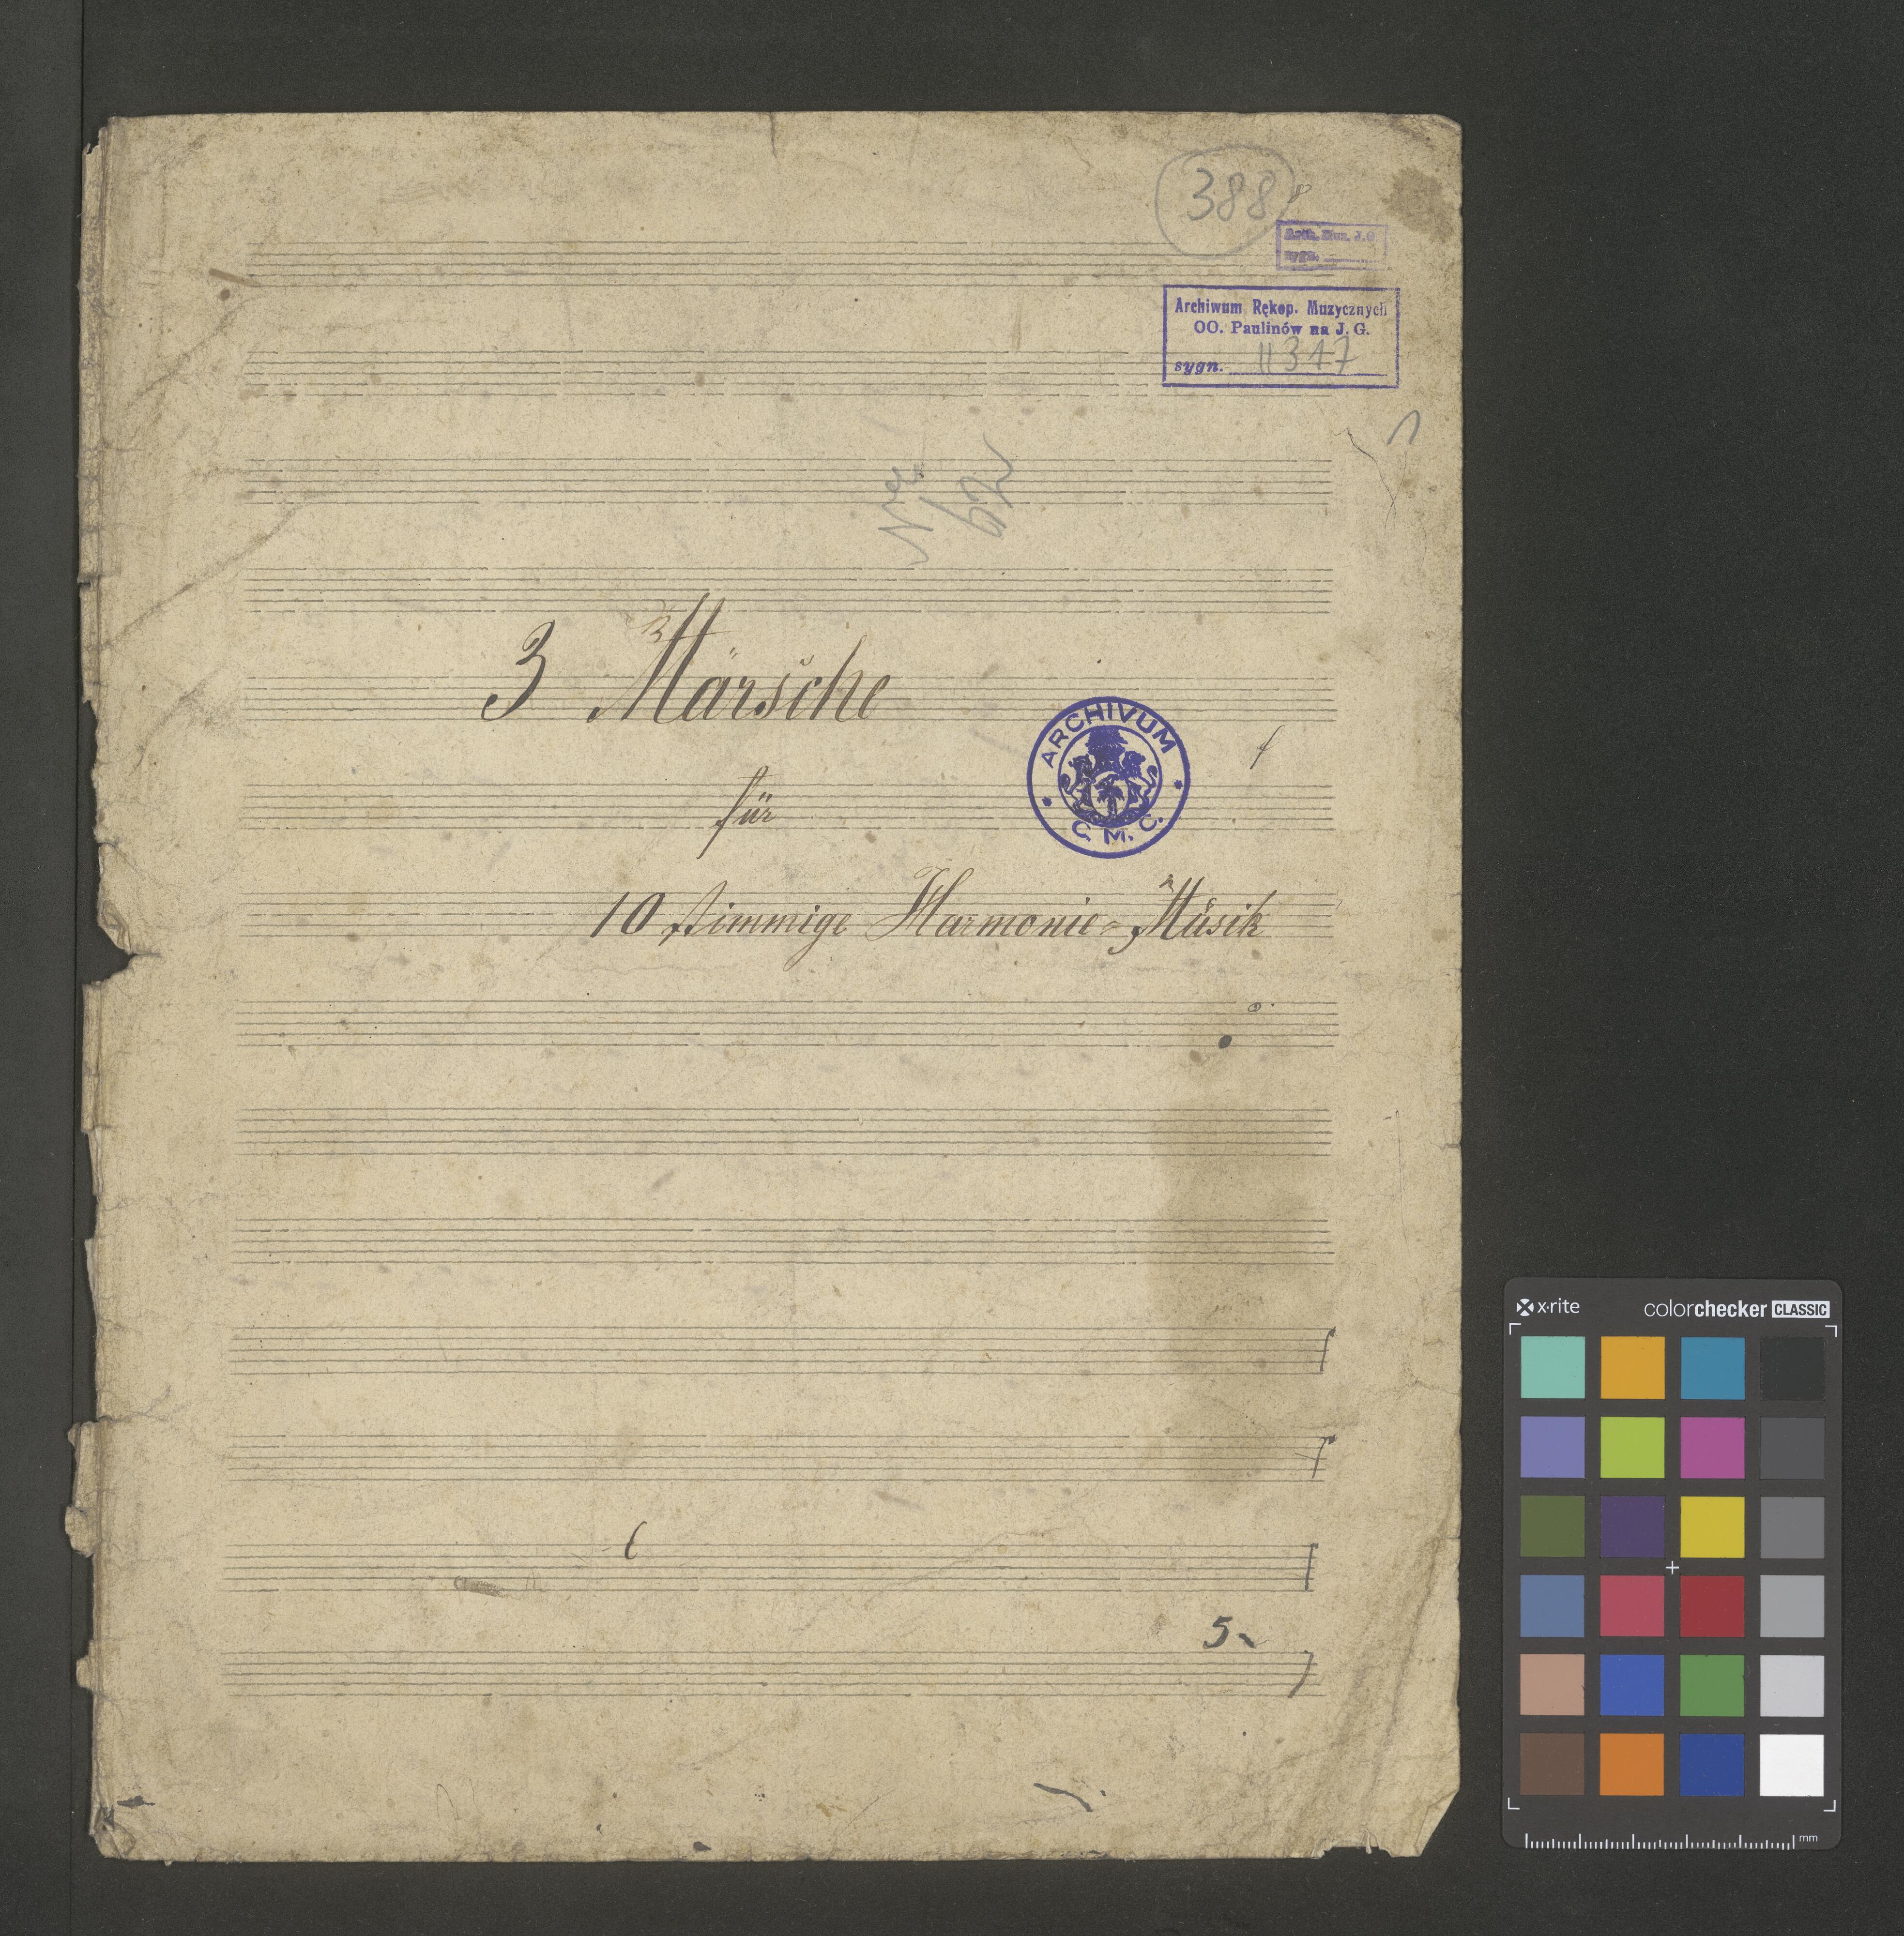 388
Arch. Muz. J. G.
sygn.
Archiwum Rękop. Muzycznych
OO. Paulinów na J. G.
sygn. II 317
1
Nro
62
3 Märsche
für
ARCHIVUM
C. M. C.
10 stimmige Harmonie-Musik
5
x·rite
colorchecker CLASSIC
mm